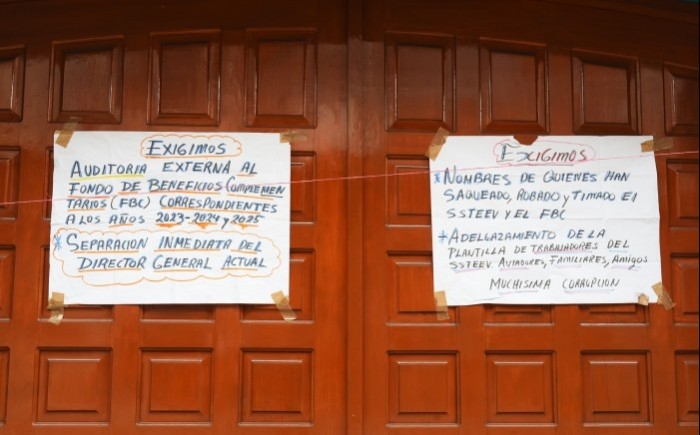 EXIGIMOS
AUDITORIA EXTERNA AL
FONDO DE BENEFICIOS COMPLEMEN
TARIOS (FBC) CORRESPONDIENTES
A LOS AÑOS 2023-2024 y 2025
* SEPARACION INMEDIATA DEL
DIRECTOR GENERAL ACTUAL
EXIGIMOS
* NOMBRES DE QUIENES HAN
SAQUEADO, ROBADO y TIMADO El
SSTEEV y EL FBC
* ADELGAZAMIENTO DE LA
PLANTILLA DE TRABAJADORES DEL
SSTEEV. AVIADORES, FAMILIARES, AMIGOS
MUCHISIMA CORRUPCION